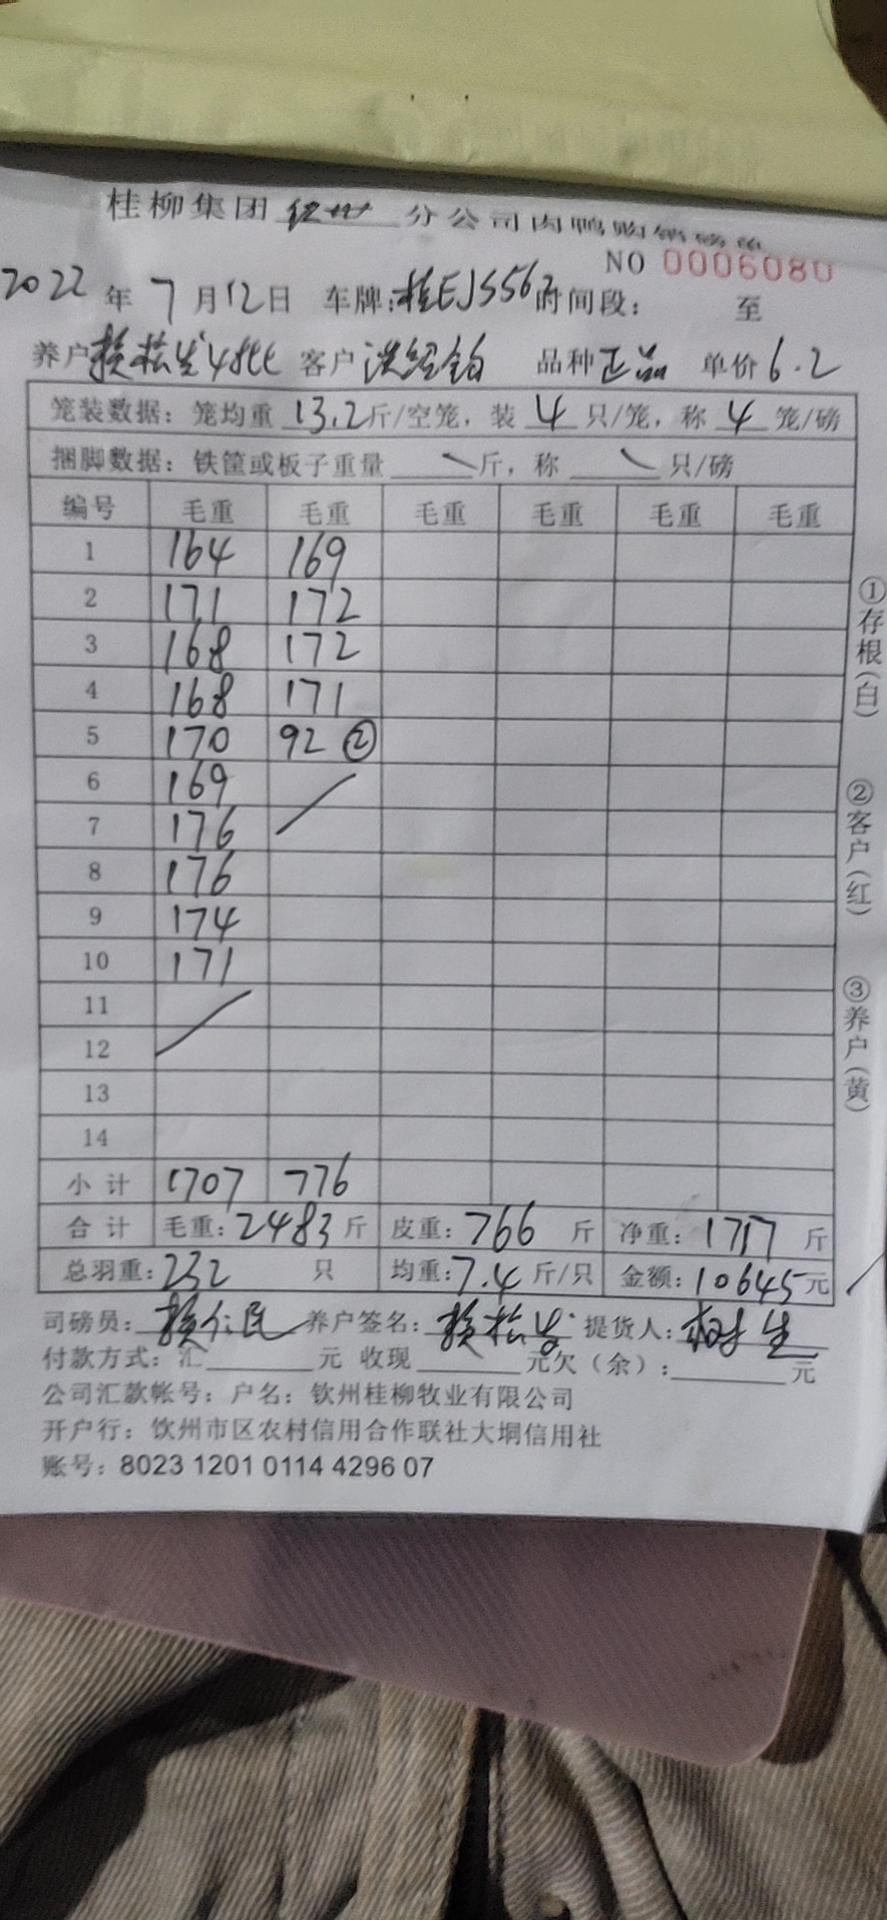 桂柳集团 分公司肉鸭购销磅单
NO 0006080
2022年7月12日 车牌:桂EJS562 时间段: 至
养户 客户 品种 正品 单价 6.2
笼装数据：笼均重 13.2 斤/空笼，装 4 只/笼，称 4 笼/磅
捆脚数据：铁筐或板子重量 斤，称 只/磅
编号 毛重 毛重 毛重 毛重 毛重 毛重
1 164 169
2 171 172
3 168 172
4 168 171
5 170 92 ②
6 169
7 176
8 176
9 174
10 171
11
12
13
14
小计 1707 776
合计 毛重：2483 斤 皮重：766 斤 净重：1717 斤
总羽重：232 只 均重：7.4 斤/只 金额：10645 元
司磅员： 养户签名： 提货人：
付款方式：汇 元 收现 元欠（余）： 元
公司汇款帐号：户名：钦州桂柳牧业有限公司
开户行：饮州市区农村信用合作联社大垌信用社
账号：8023 1201 0114 4296 07
①存根(白)
②客户(红)
③养户(黄)